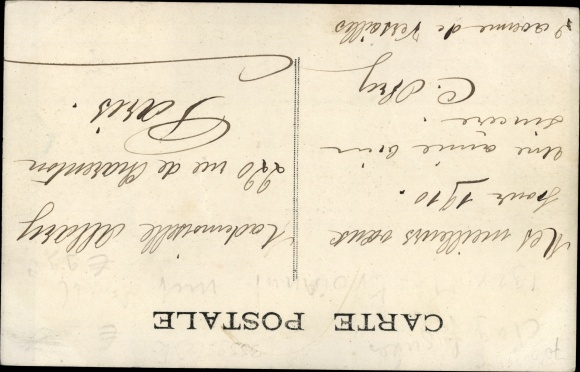 CARTE POSTALE
Mes meilleurs vœux
pour 1910.
Une amie bien
sincère.
C.
2 avenue de Versailles
Mademoiselle Allary
220 rue de Charenton
Paris.